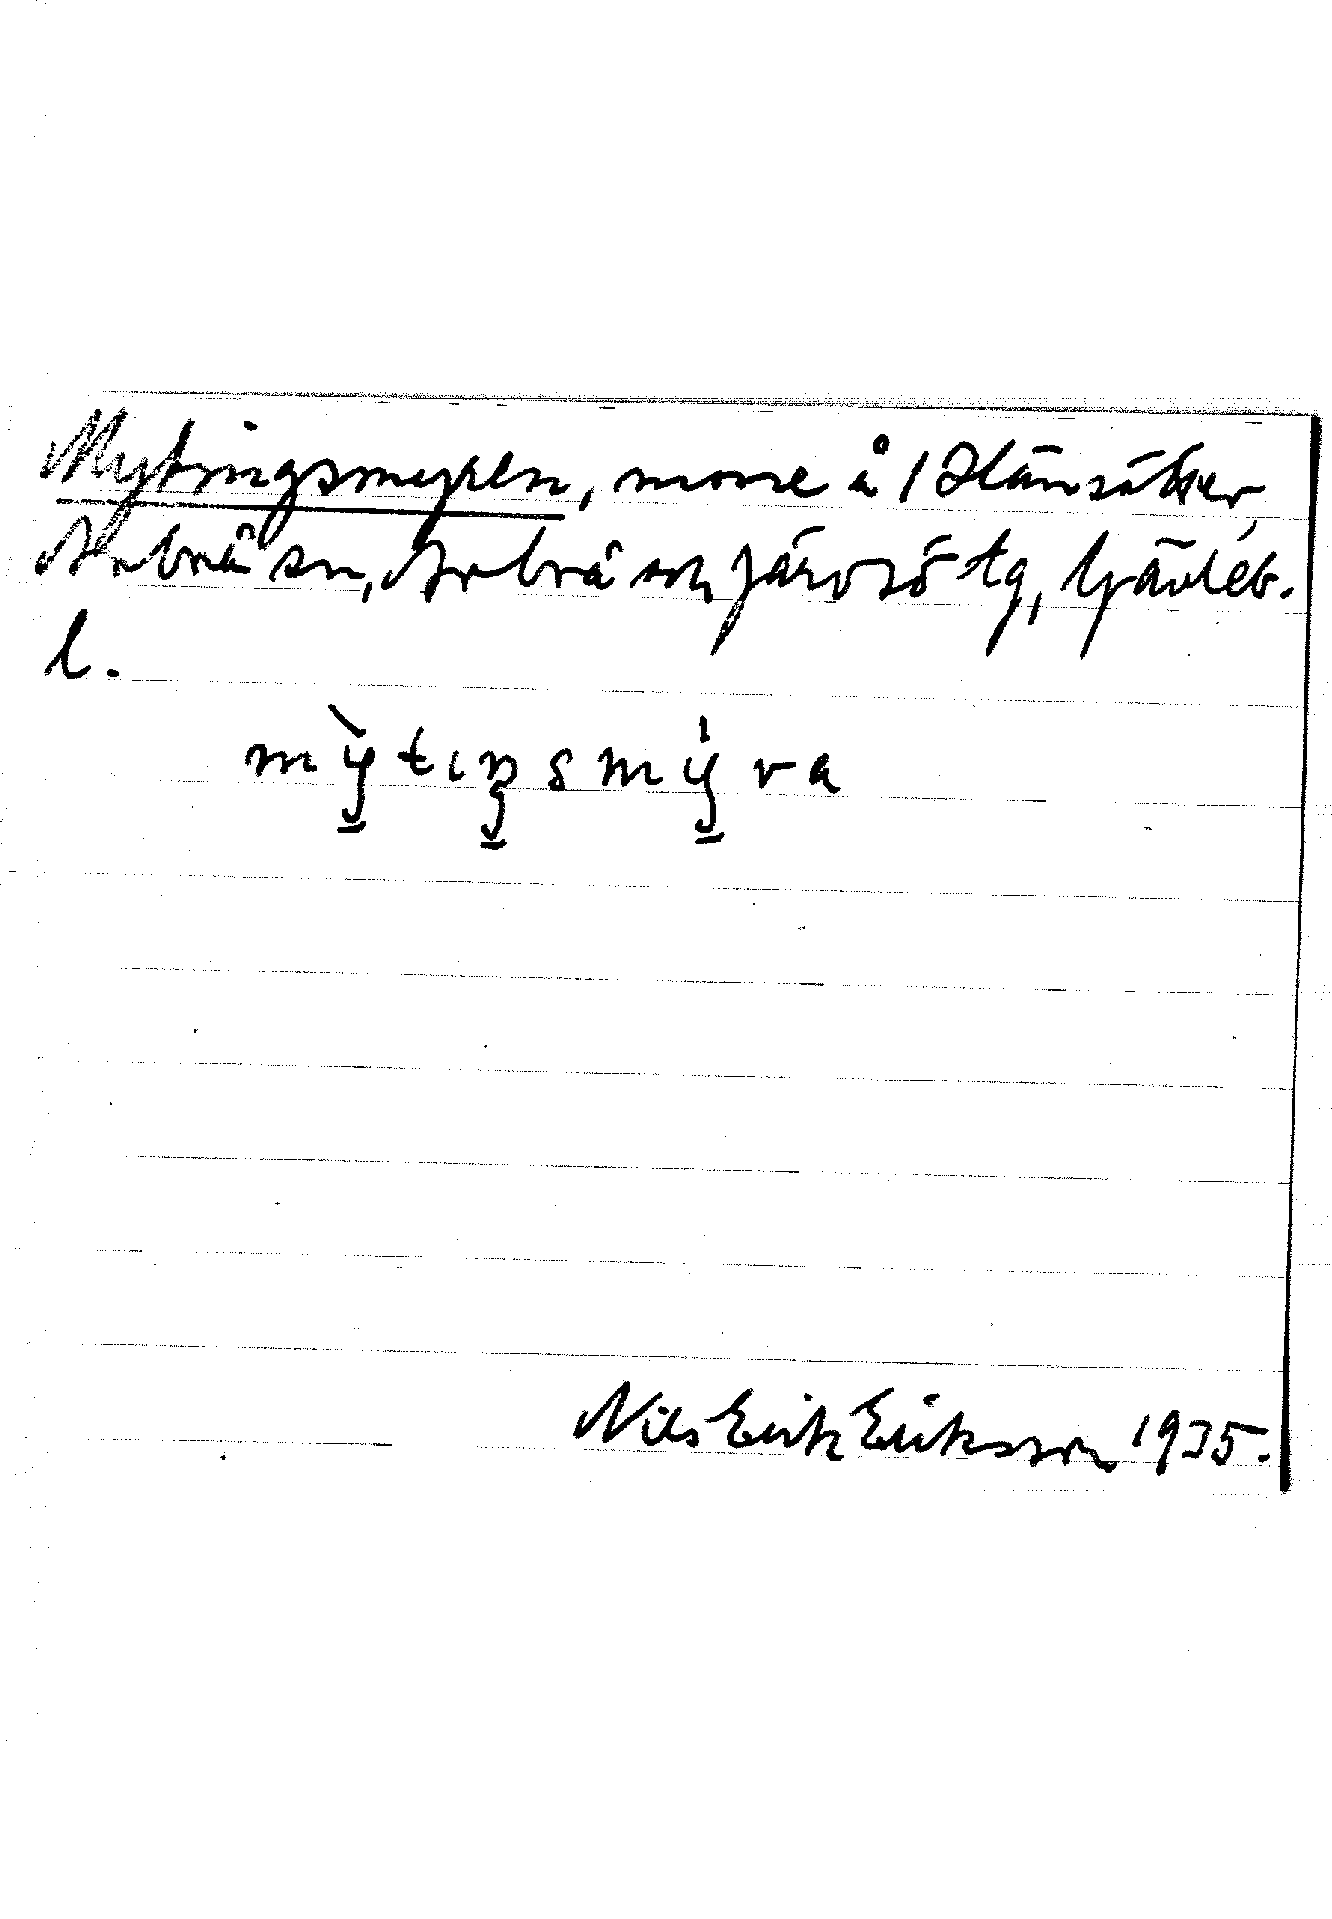 Mytingsmyren, morre å 1 Flänsåker,
Arbrå sn, Arbrå och Järvsö tg, Gävleb.
l.
mỳtıŋsmẏra
Nils Erik Eriksson 1935.